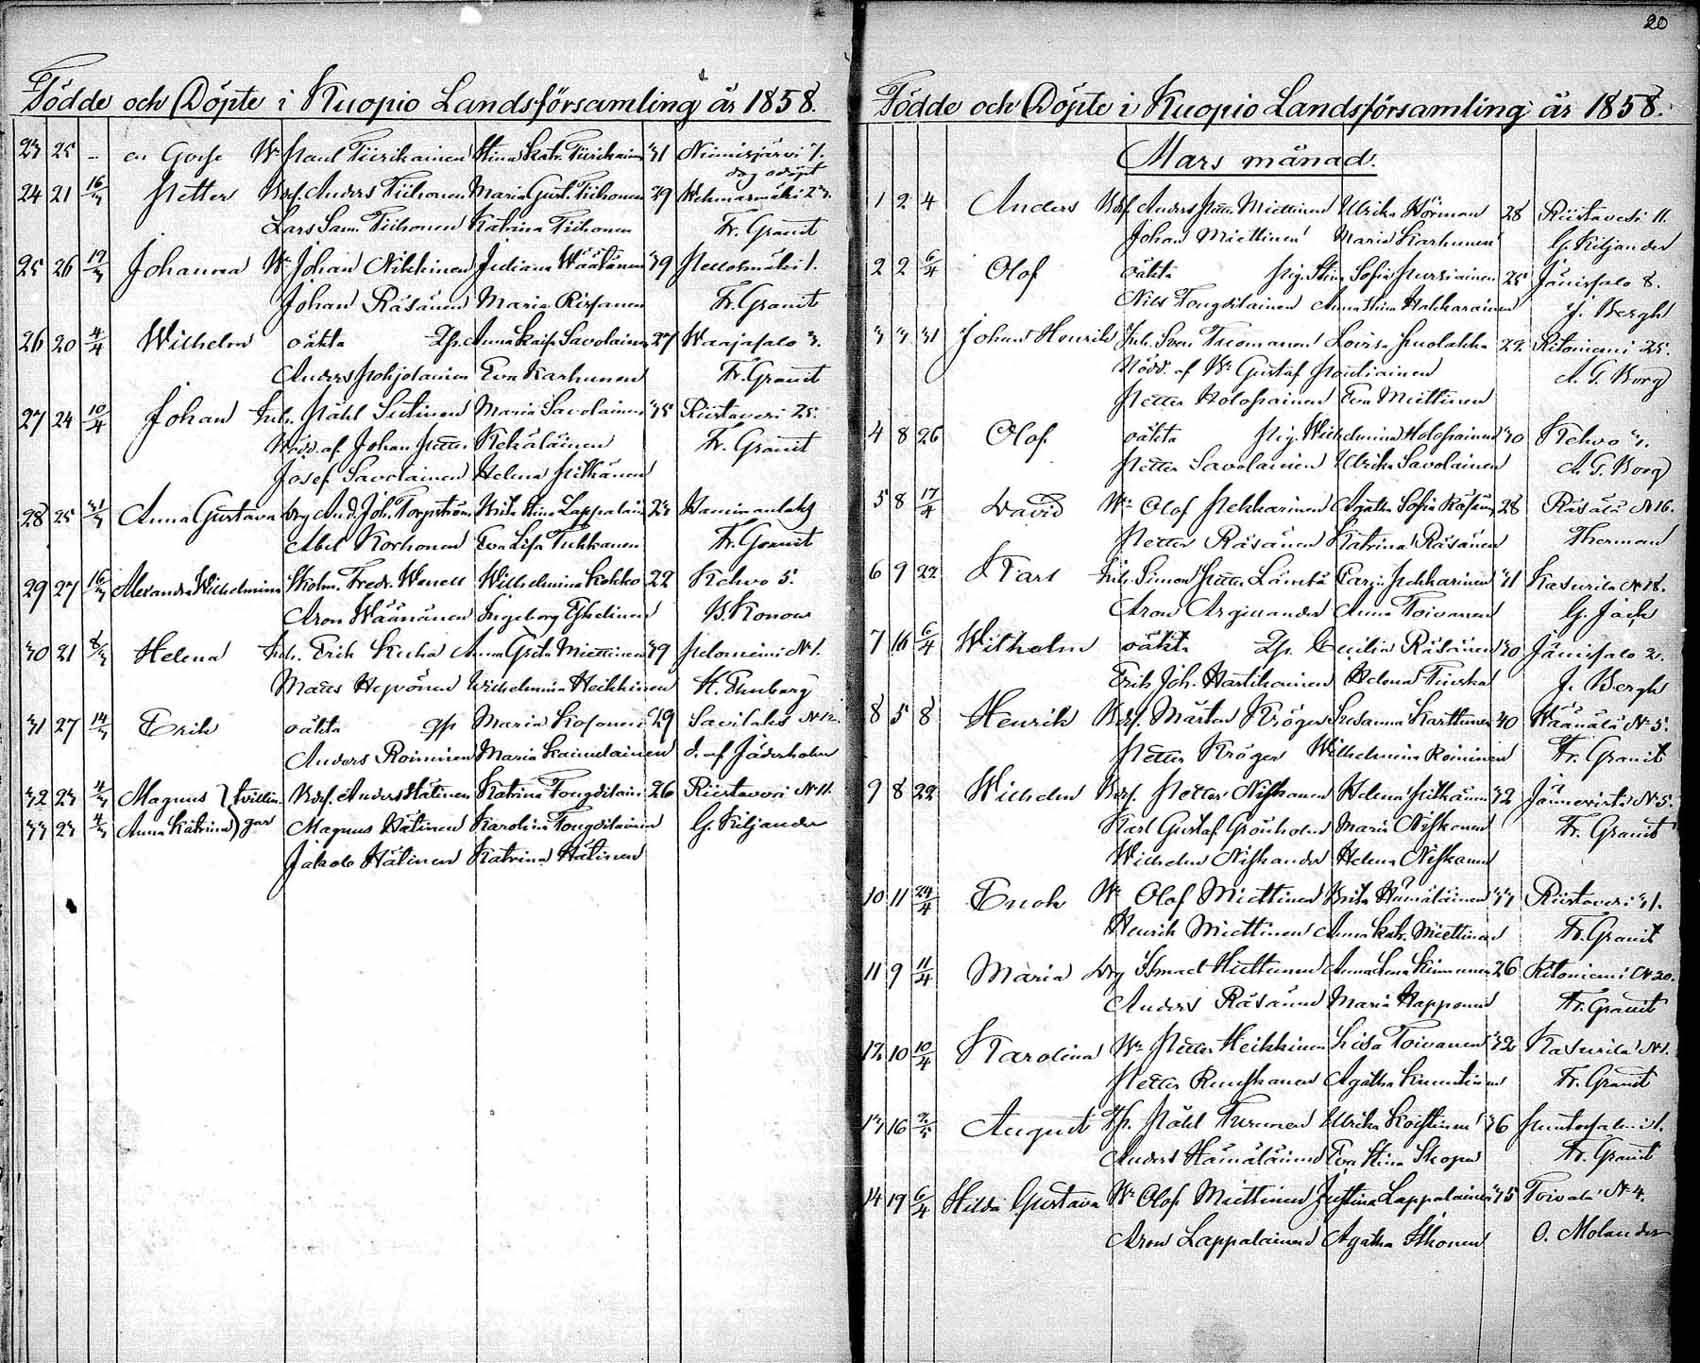 Födde och Döpte i Kuopio Landsförsamling år 1858.
23 25 - en Gosse Paul Tiirikainen Stina Katr. Tiirikain 31 Niemisjärvi 7.
död odöpt
24 21 16/3 Petter Anders Tiihonen Maria Gust. Tiihonen 29 Vehmasmäki 23.
Lars Sam. Tiihonen Katrina Tiihonen Fr. Granit
25 26 Johanna Johan Nikkinen Juliana Väätäinen 39 Pellosmäki 1.
Johan Räsänen Maria Fr. Granit
26 20 4/4 Wilhelm oäkta Anna Kaisa Savolainen 27 3.
Anders Pohjolainen Eva Karhunen Fr. Granit
27 24 10/4 Johan Inh. Påhl Sutinen Maria Savolainen 35 Riistavesi 25.
Nöd. af Johan Petter Kekäläinen Fr. Granit
Josef Savolainen Helena Pitkänen
28 25 Anna Gustava And. Joh. Brita Stina Lappalain 23
Abel Korhonen Eva Lisa Fr. Granit
29 27 16/3 Alexandra Wilhelmina Fredr. Wenell Wilhelmina Kokko 22 Kehvo 5.
Aron Väänänen Ingeborg B. Konow
30 21 8/3 Helena Inh. Erik Kuha Anna Greta Miettinen 39 No 1.
Mades Hyvönen Wilhelmina Heikkinen
31 27 14/3 Erik oäkta Maria Kosonen 29 Savilaks No 12.
Anders Roininen Maria
32 23 4/3 Magnus } tvillin- Anders Hätinen Katrina Tongdilain 26 Riistavesi No 11.
33 23 4/3 Anna Katrina } gar Magnus Hätinen Karolina Tongdilainen G. Kiljander
Jakob Hätinen Katrina Hätinen
20
Födde och Döpte i Kuopio Landsförsamling år 1858.
Mars månad.
1 2 4 Anders Anders Petter Miettinen Ulrika Hörman 28 Riistavesi 11.
Johan Miettinen Maria Karhunen G. Kiljander
2 2 6/4 Olof oäkta Pig. Stina Sofia Pursiainen 25 Jänissalo 8.
Nils Tongdilainen Anna Stina Hakkarainen J. Bergh
3 3 31 Johan Henrik Inh. Sven Tuomanen Lovisa Puolakka 22 Ritoniemi 25.
Nödd. af Gustaf Poutiainen A. G. Borg
Petter Holopainen Eva Miettinen
4 8 26 Olof oäkta Pig. Wilhelmina Holopainen 30 Kehvo 3.
Petter Savolainen Ulrika Savolainen A. G. Borg
5 8 17/4 David Olof Pekkarinen Agatha Sofia Räsänen 28 Räsälä No 16.
Petter Räsänen Katrina Räsänen
6 9 22 Karl Inh. Simon Petter Lämsä Carin Pekkarinen 31 Kasurila No 18.
Aron Argillander Anna Toivanen G. Jack
7 16 6/4 Wilhelm oäkta Cecilia Räsänen 30 Jänissalo 2.
Erik Joh. Hartikainen Helena J. Bergh
8 5 8 Henrik Mårten Kröger Susanna Karttunen 40 Väänälä No 5.
Petter Kröger Wilhelmina Roininen Fr. Granit
9 8 22 Wilhelm Petter Niskanen Helena Pitkänen 32 Jännevirta No 5.
Karl Gustaf Grönholm Maria Niskanen Fr. Granit
Wilhelm Niskanen Helena Niskanen
10 11 24/4 Enok Olof Miettinen Brita Hämäläinen 37 Riistavesi 31.
Henrik Miettinen Anna Katr. Miettinen Fr. Granit
11 9 11/4 Maria Ismael Huttunen Anna Lena Kinnunen 26 Ritoniemi No 20.
Anders Räsänen Maria Happonen Fr. Granit
12 10 10/4 Karolina Petter Heikkinen Lisa Toivanen 32 Kasurila No 1.
Petter Ruuskanen Agatha Fr. Granit
13 16 2/5 August Påhl Turunen Ulrika Koistinen 36 Puutossalmi 1.
Anders Hämäläinen Eva Stina Skopa Fr. Granit
14 19 6/4 Hilda Gustava Olof Miettinen Justina Lappalainen 35 Toivala No 4.
Aron Lappalainen Agatha Ikonen O. Molander